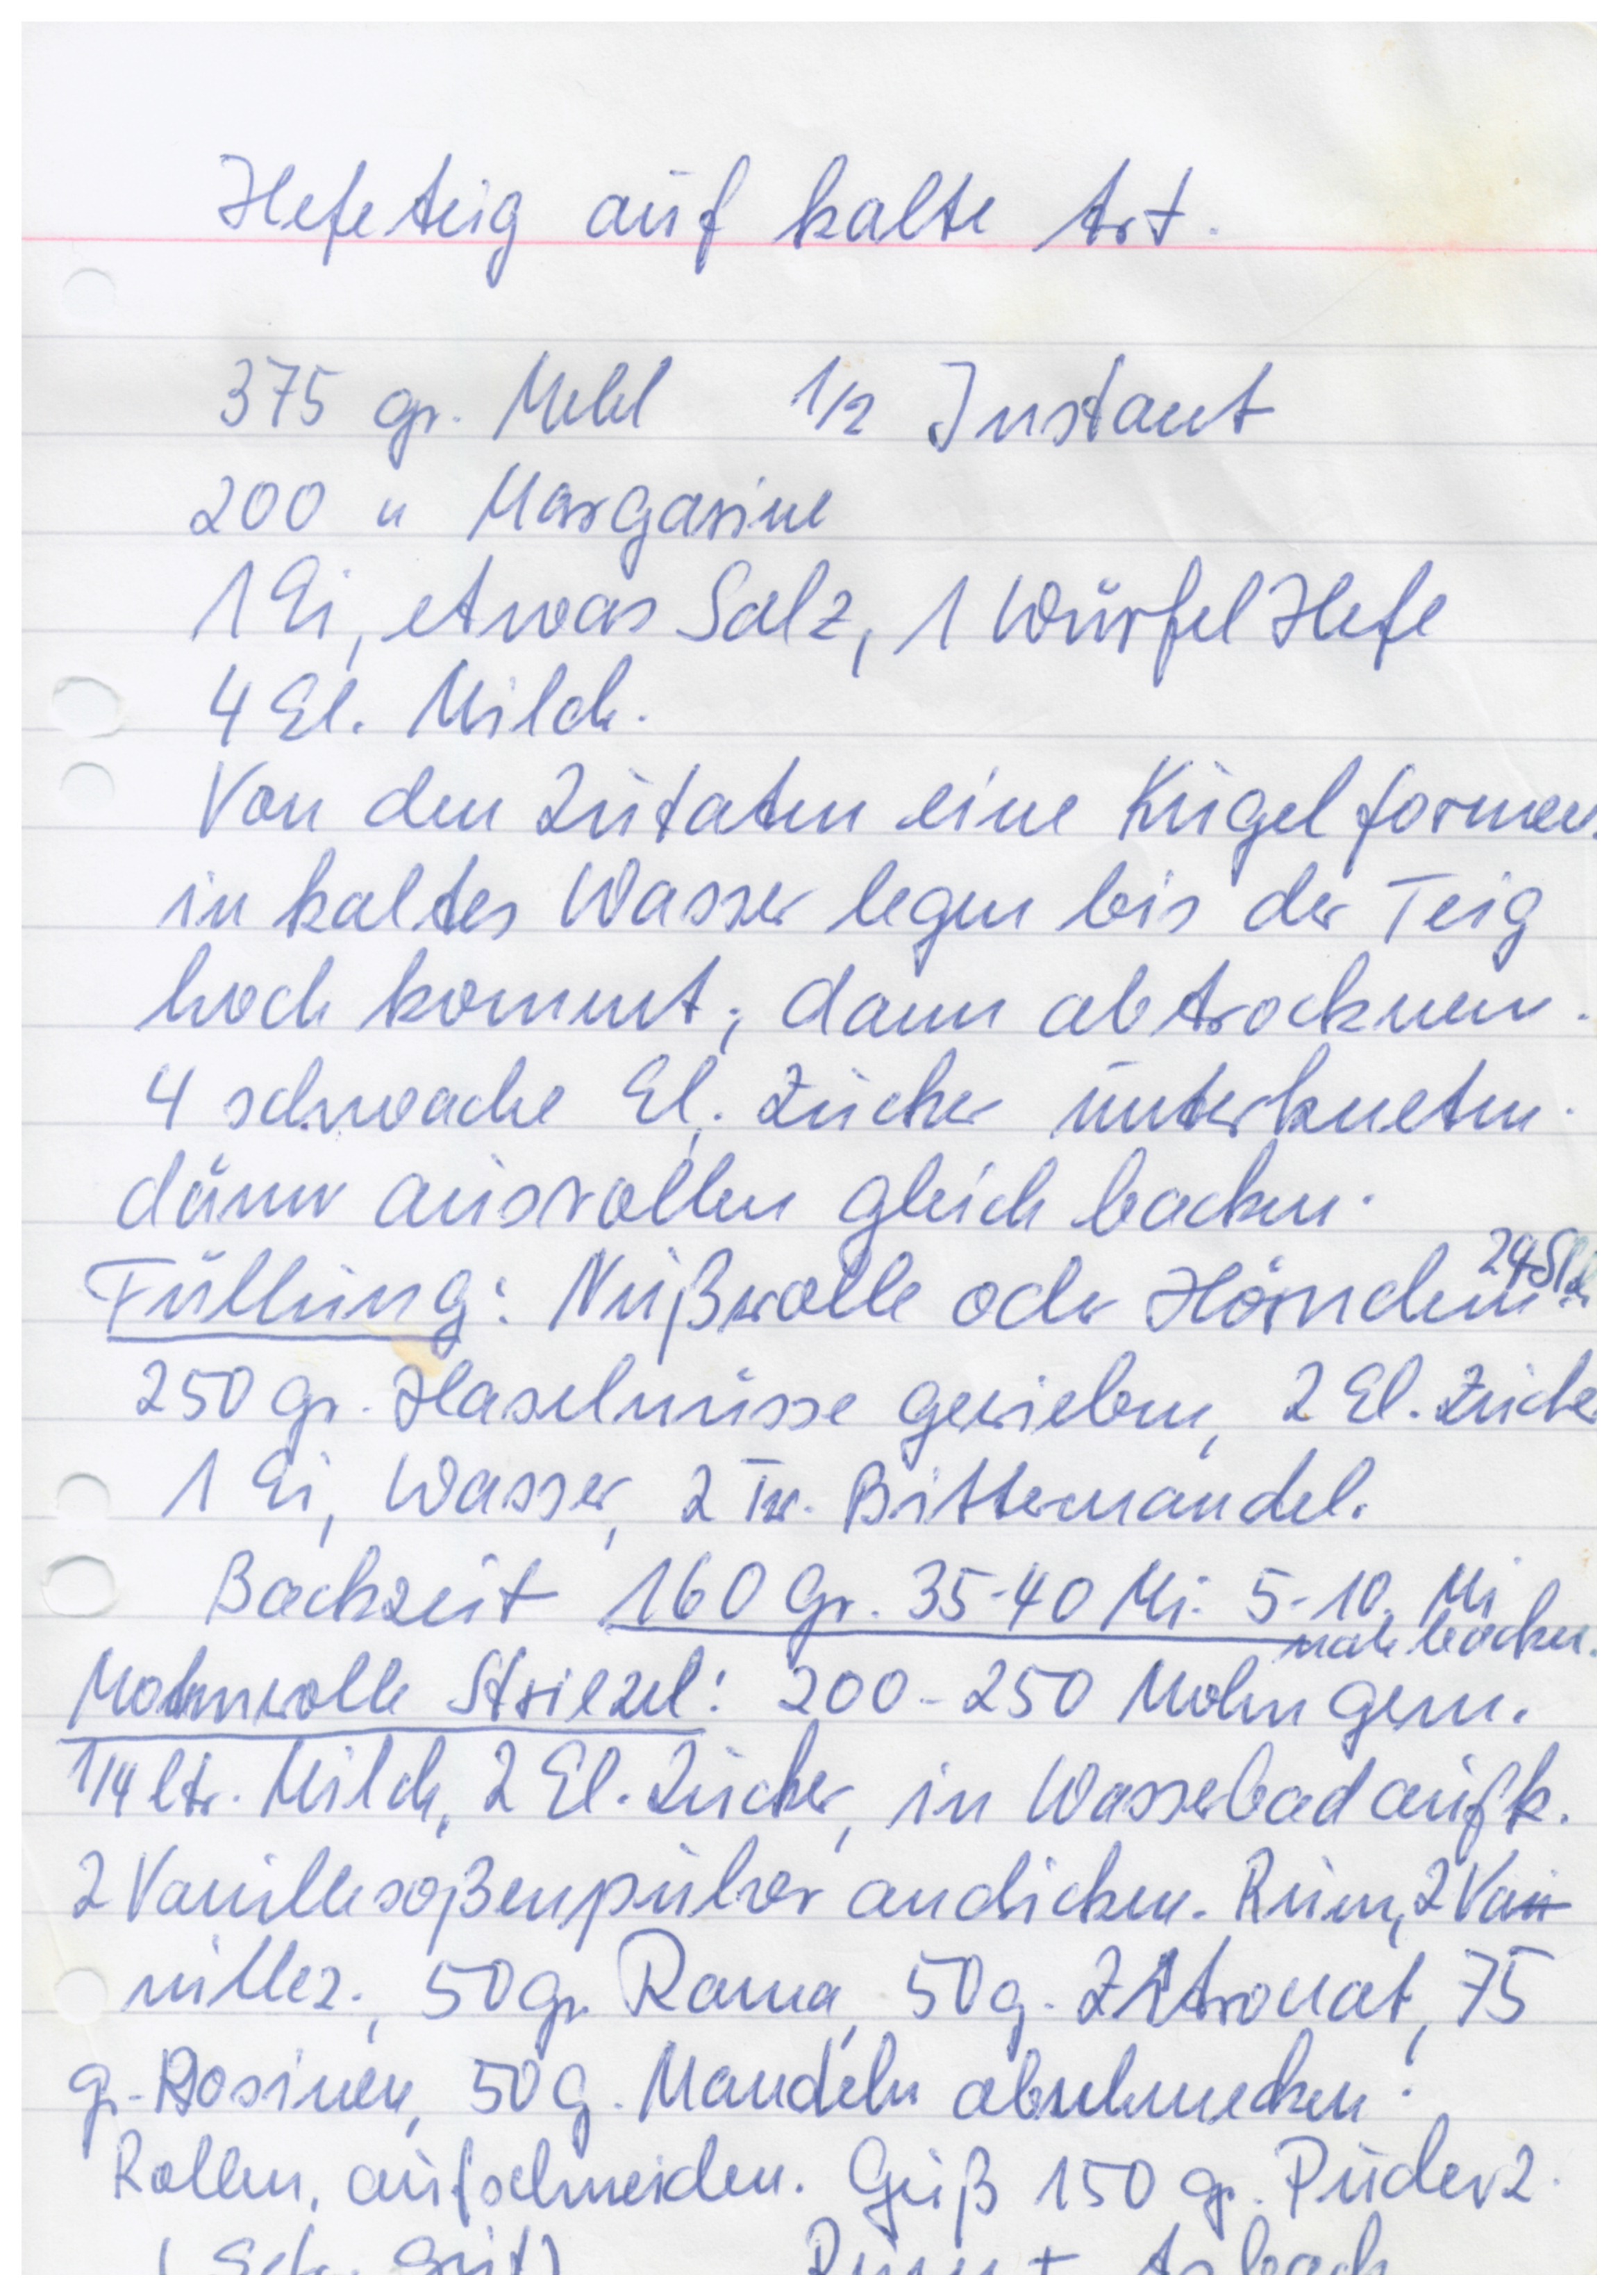 Hefeteig auf kalte Art.
375 gr. Mehl 1/2 Instant
200 " Margarine
1 Ei, etwas Salz, 1 Würfel Hefe
4 El. Milch.
Von den Zutaten eine Kugel formen.
in kaltes Wasser legen bis der Teig
hoch kommt, dann abtrocknen.
4 schwache El. Zucker unterkneten.
dünn ausrollen gleich backen.
Füllung: Nußrolle oder Hörnchen 24 Stck.
250 gr. Haselnüsse gerieben, 2 El. Zucker
1 Ei, Wasser, 2 Tr. Bittermandel.
Backzeit 160 Gr. 35-40 Mi. 5-10 Mi
nach backen.
Mohnrolle Striezel: 200-250 Mohn gem.
1/4 ltr. Milch, 2 El. Zucker, in Wasserbad aufk.
2 Vanillesoßenpulver andicken. Rum, 2 Va
nillez., 50 gr. Rama, 50 g. Zitronat, 75
g. Rosinen, 50 g. Mandeln abschmecken.
Rollen, aufschneiden. Guß 150 gr. Puderz.
(Sch. gut) Rum + Asbach